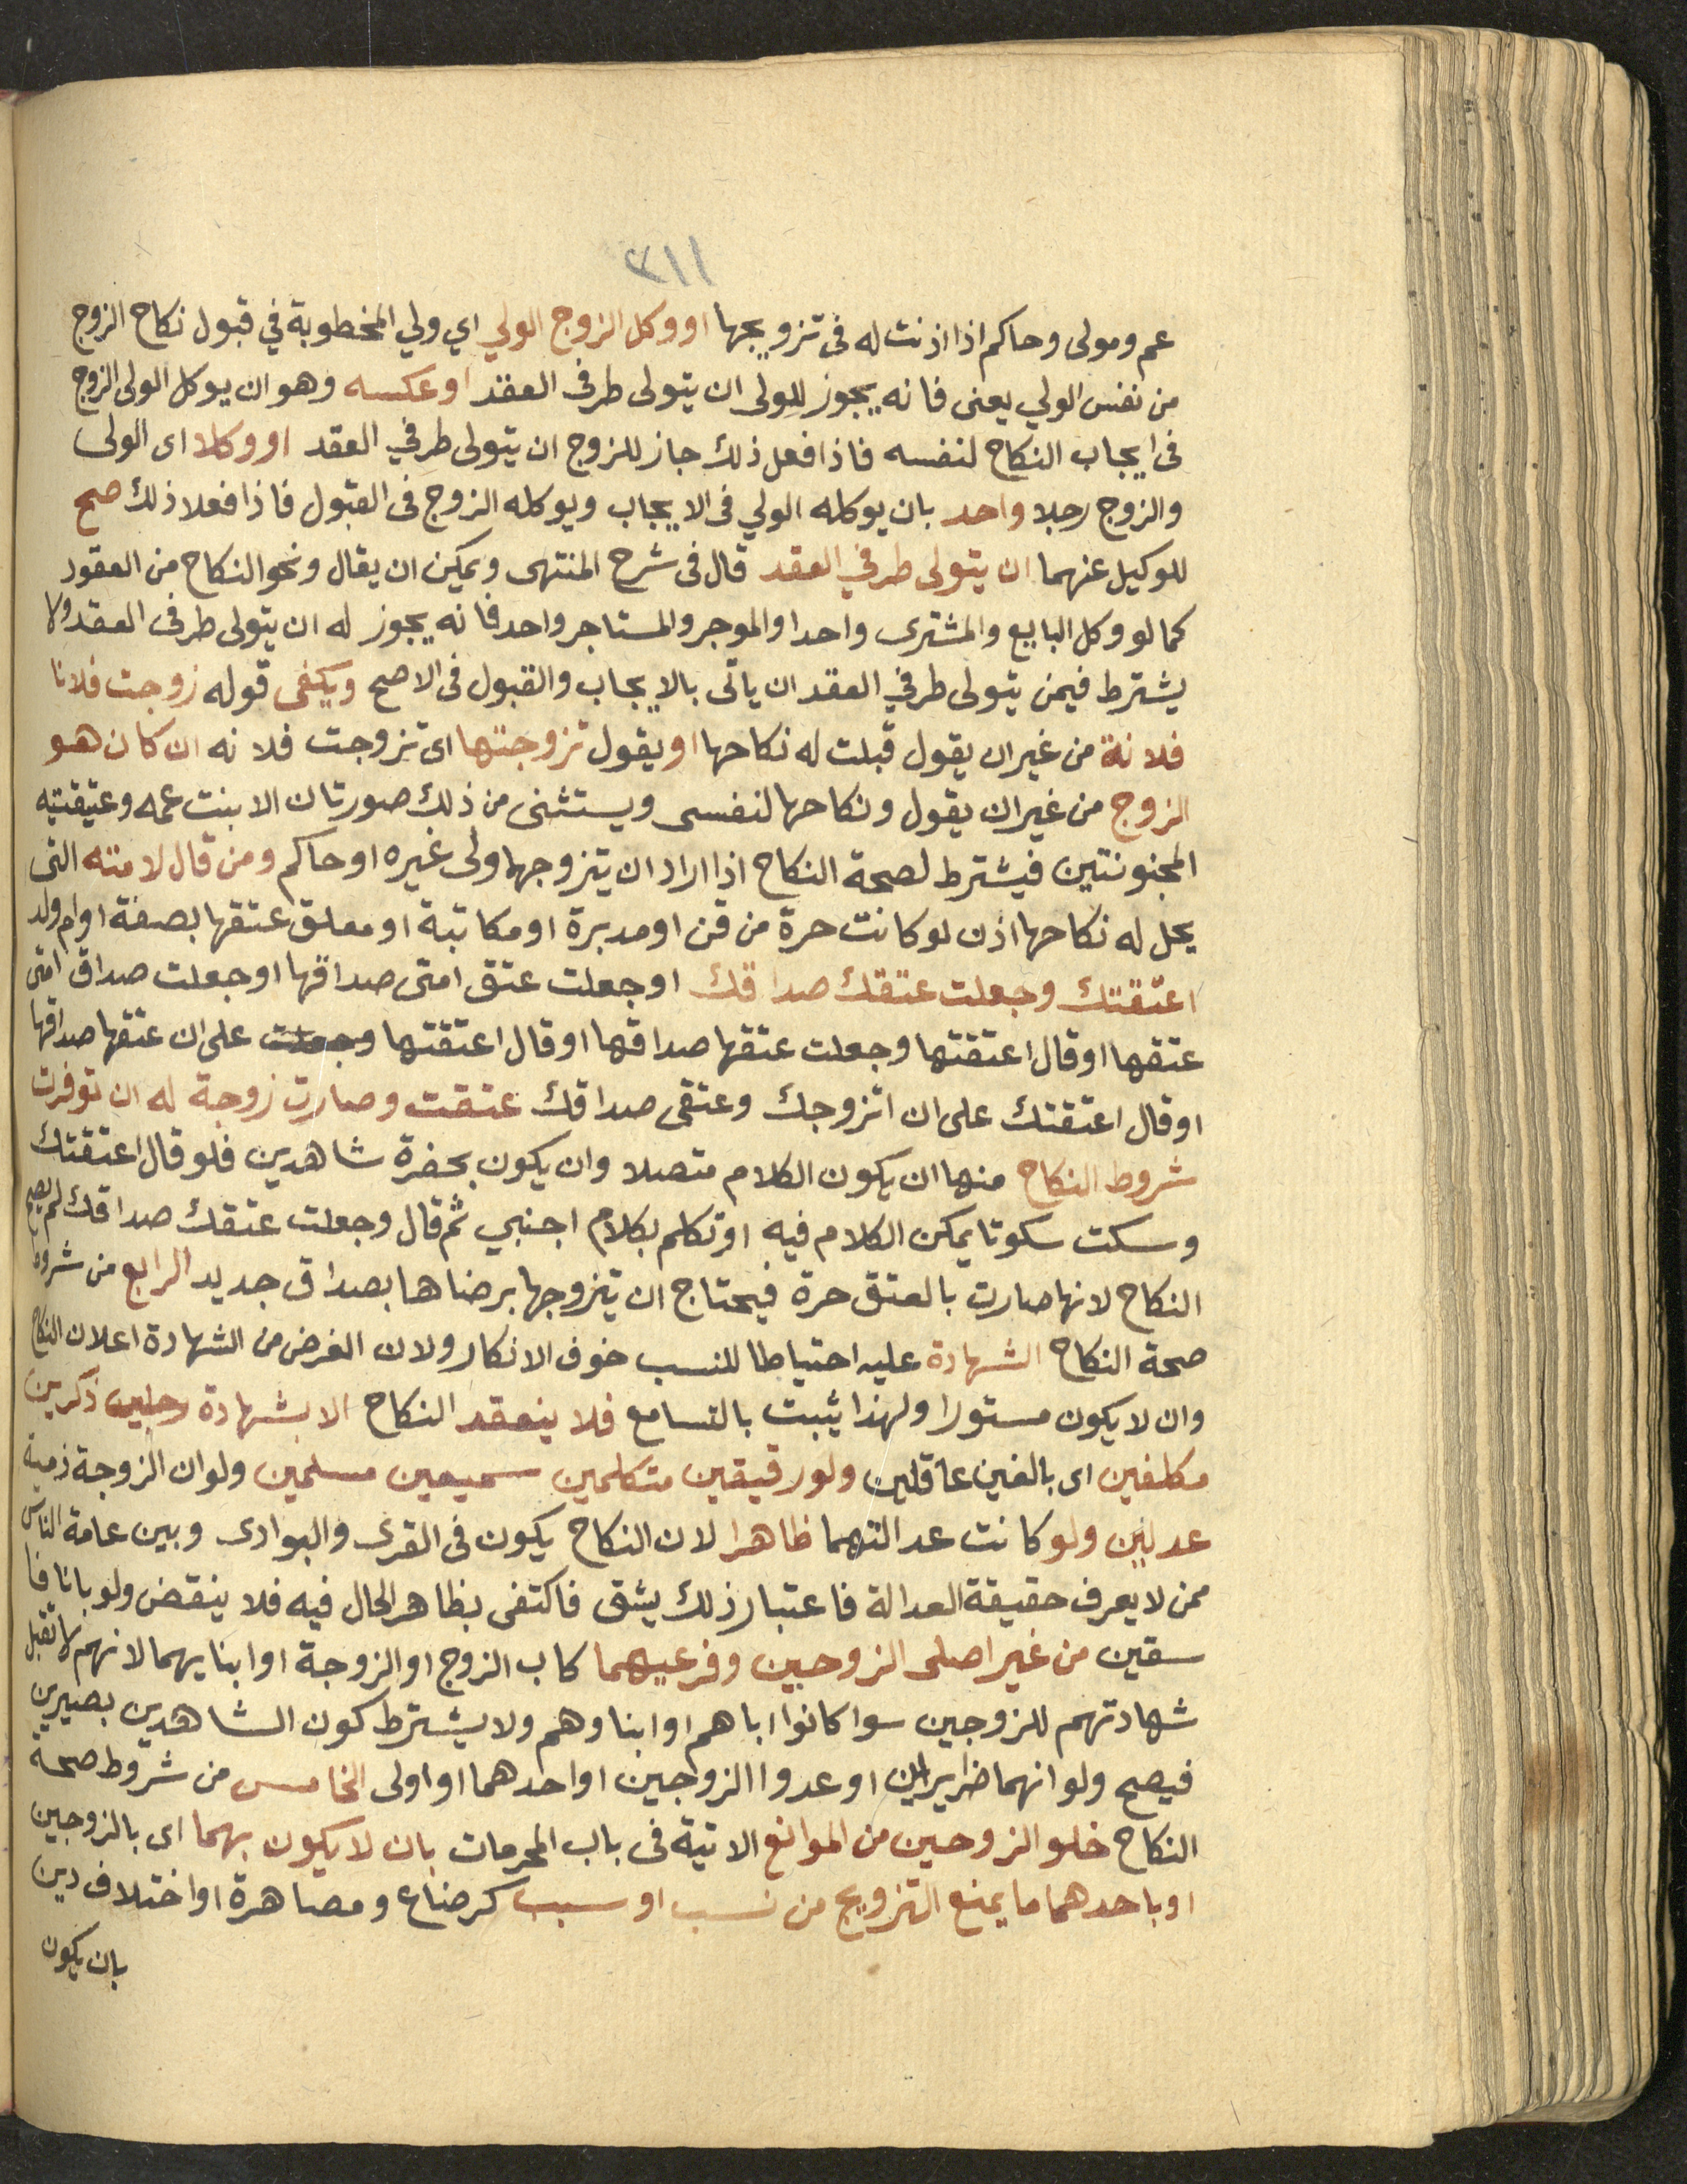 ٣١١
عم ومولى وحاكم اذا اذنت له فى تزويجها او وكل الزوج الولي اي ولي المخطوبة في قبول نكاح الزوج
من نفس الولي يعنى فانه يجوز للولى ان يتولى طرفى العقد او عكسه وهو ان يوكل الولى الزوج
فى ايجاب النكاح لنفسه فاذا فعل ذلك جاز للزوج ان يتولى طرفي العقد او وكلا اى الولى
والزوج رجلا واحد بان يوكله الولي فى الايجاب ويوكله الزوج فى القبول فاذا فعلا ذلك صح
للوكيل عنهما ان يتولى طرفي العقد قال فى شرح المنتهى ويمكن ان يقال ونحو النكاح من العقود
كما لو وكل البايع والمشترى واحدا والموجر والمستاجر واحد فانه يجوز له ان يتولى طرفى العقد ولا
يشترط فيمن يتولى طرفي العقد ان ياتى بالايجاب والقبول فى الاصح ويكفى قوله زوجت فلانا
فلانة من غير ان يقول قبلت له نكاحها او يقول تزوجتها اى تزوجت فلانه ان كان هو
الزوج من غير ان يقول ونكاحها لنفسى ويستثنى من ذلك صورتان الا بنت عمه وعتيقتيه
المجنونتين فيشترط لصحة النكاح اذا اراد ان يتزوجهما ولى غيره او حاكم ومن قال لامته التى
يحل له نكاحها اذن لو كانت حرة من قن او مدبرة او مكاتبة او معلق عتقها بصفة او ام ولد
اعتقتك وجعلت عتقك صداقك او جعلت عتق امتى صداقها او جعلت صداق امتى
عتقها او قال اعتقتها وجعلت عتقها صداقها او قال اعتقتها وجعلت على ان عتقها صداقها
او قال اعتقتك على ان اتزوجك وعتقى صداقك عتقت وصارت زوجة له ان توفرت
شروط النكاح منها ان يكون الكلام متصلا وان يكون بحضرة شاهدين فلو قال اعتقتك
وسكت سكوتا يمكن الكلام فيه او تكلم بكلام اجنبي ثم قال وجعلت عتقك صداقك لم يصح
النكاح لانها صارت بالعتق حرة فيحتاج ان يتزوجها برضاها بصداق جديد الرابع من شروط
صحة النكاح الشهادة عليه احتياطا للنسب خوف الانكار ولان الغرض من الشهادة اعلان النكاح
وان لا يكون مستورا ولهذا يثبت بالتسامع فلا ينعقد النكاح الا بشهادة رجلين ذكرين
مكلفين اى بالغين عاقلين ولو رقيقين متكلمين سميعين مسلمين ولو ان الزوجة ذمية
عدلين ولو كانت عدالتهما ظاهرا لان النكاح يكون فى القرى والبوادى وبين عامة الناس
ممن لا يعرف حقيقة العدالة فاعتبار ذلك يشق فاكتفى بظاهر الحال فيه فلا ينقض ولو بانا فا
سقين من غير اصلى الزوجين وفرعيهما كاب الزوج او الزوجة او ابنايهما لانهم لا تقبل
شهادتهم للزوجين سوا كانوا اباهم او ابناوهم ولا يشترط كون الشاهدين بصيرين
فيصح ولو انهما ضريران او عدوا الزوجين او احدهما او اولى الخامس من شروط صحة
النكاح خلو الزوجين من الموانع الاتية فى باب المحرمات بان لا يكون بهما اى بالزوجين
او باحدهما ما يمنع التزويج من نسب او سبب كرضاع ومصاهرة او اختلاف دين
بان يكون